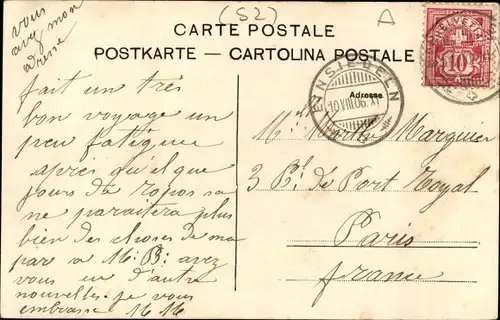 vous
avez mon
adresse
(S2)
A
CARTE POSTALE
POSTKARTE — CARTOLINA POSTALE
HELVETIA
10
EINSIEDELN
10 VIII 06. XI
Adresse
fait un très
bon voyage un
peu fatiguée
après quelque
jours de repos sa
ne paraitera plus
bien des choses de ma
par a M. B. avez
vous eu d'autre
nouvelles je vous
embrasse M M
Marthe Marquier
3 Pl. de Port Royal
Paris
france